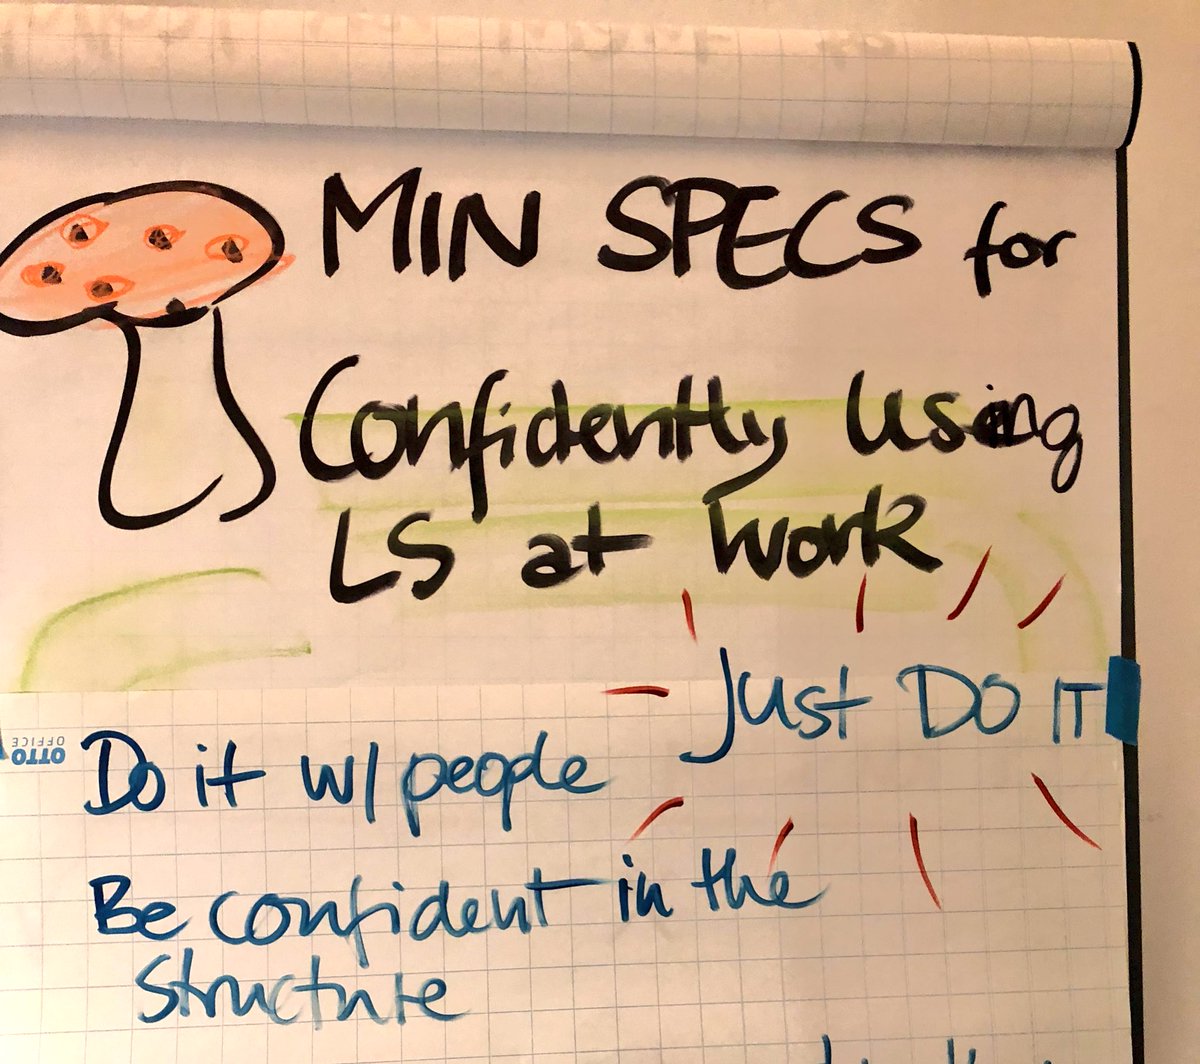 MIN SPECS for
Confidently Using
LS at work
Just DO IT
OTTO
OFFICE
Do it w/ people
Be confident in the
structure